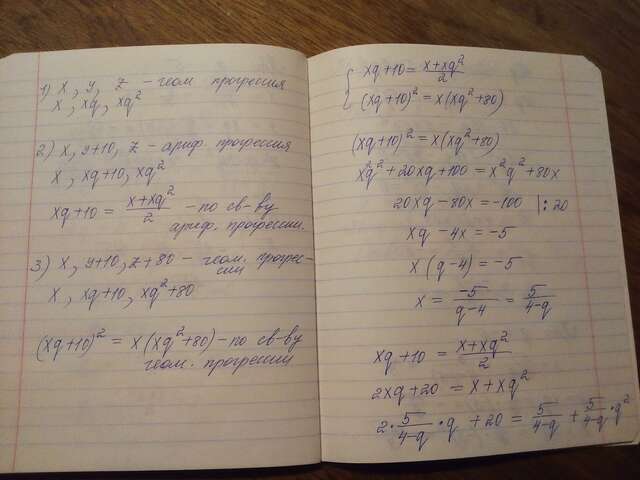 1) x, y, z - геом прогрессия
x, xq, xq²
2) x, y+10, z - ариф. прогрессия
x, xq+10, xq²
xq+10 = (x+xq²)/2 - по св-ву
ариф. прогрессии.
3) x, y+10, z+80 - геом. прогрес-
сии
x, xq+10, xq²+80
(xq+10)² = x(xq²+80) - по св-ву
геом. прогрессии
{ xq+10 = (x+xq²)/2
(xq+10)² = x(xq²+80)
(xq+10)² = x(xq²+80)
x²q²+20xq+100 = x²q²+80x
20xq-80x = -100 |:20
xq-4x = -5
x(q-4) = -5
x = -5/(q-4) = 5/(4-q)
xq+10 = (x+xq²)/2
2xq+20 = x+xq²
2·5/(4-q)·q+20 = 5/(4-q)+5/(4-q)·q²